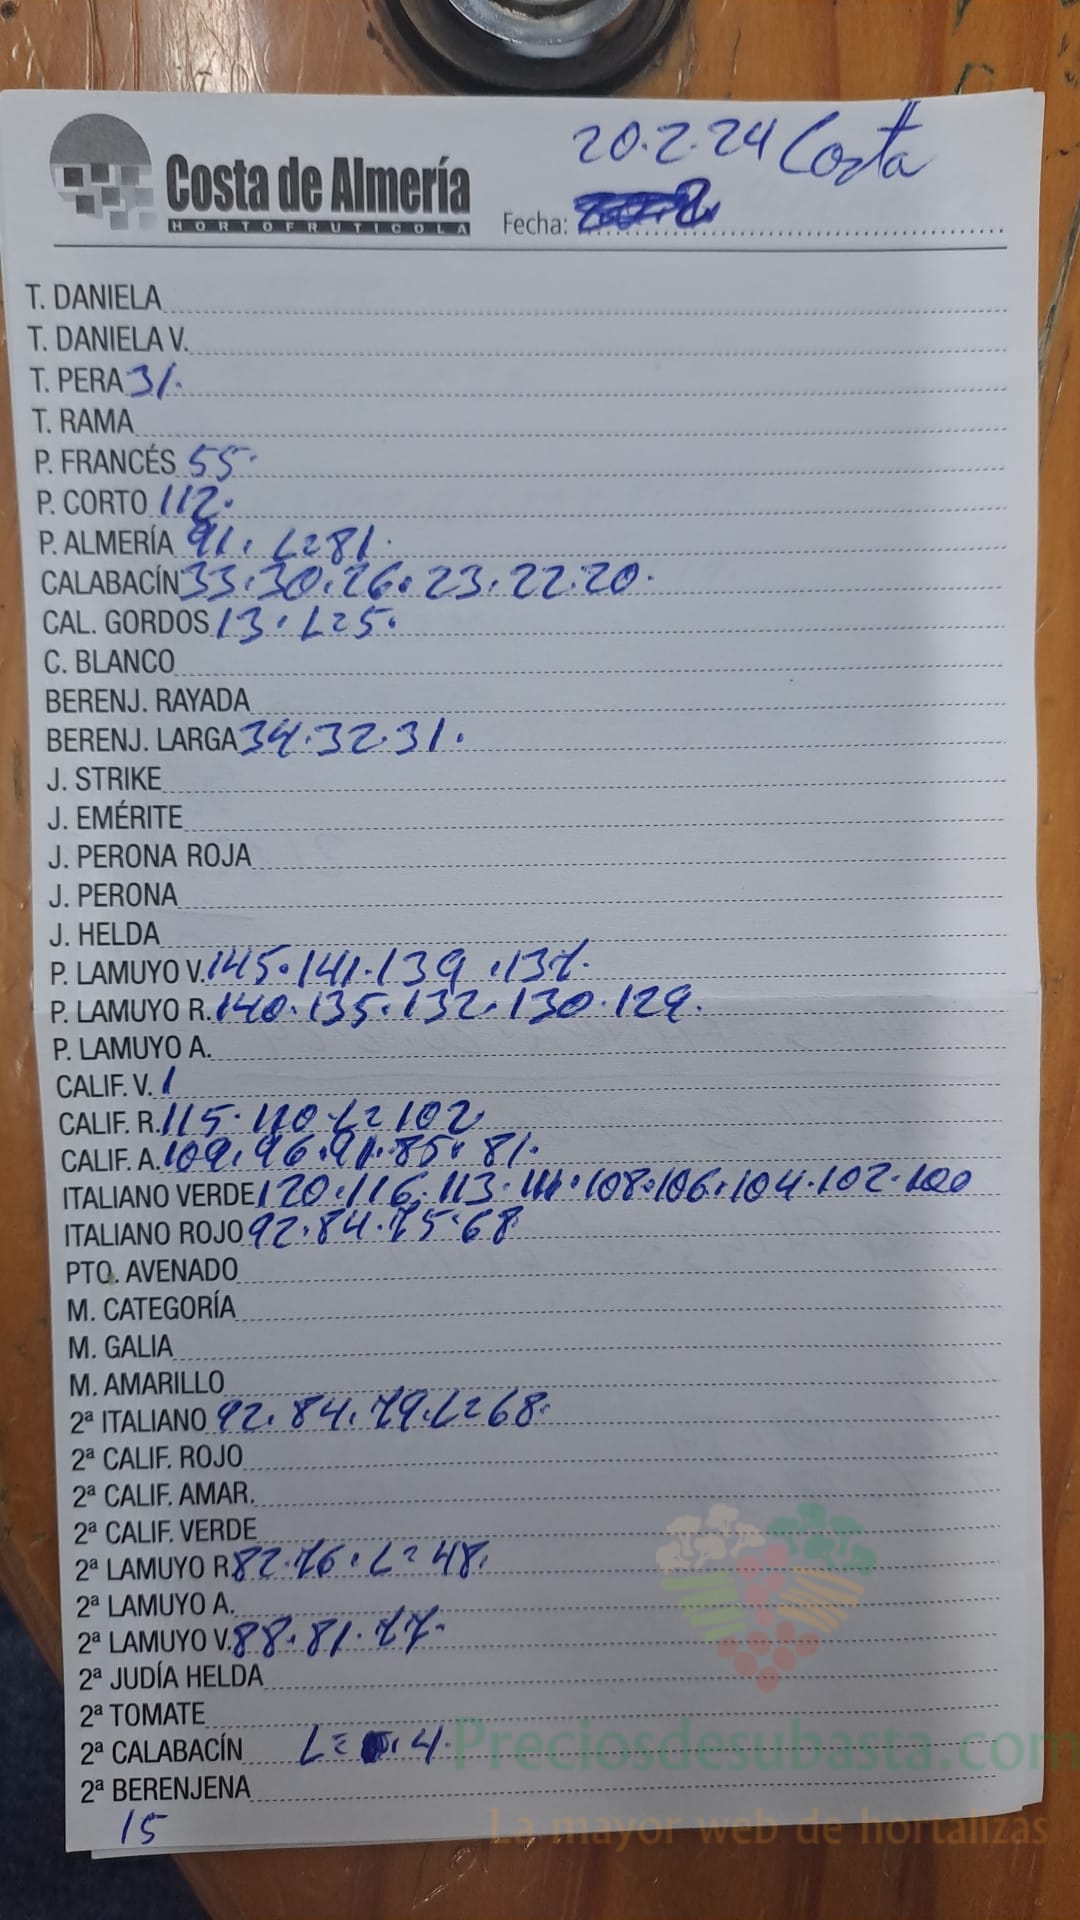 20.2.24 Costa
Costa de Almería
HORTOFRUTICOLA
Fecha:
T. DANIELA
T. DANIELA V.
T. PERA 31.
T. RAMA
P. FRANCÉS 55.
P. CORTO 112.
P. ALMERÍA 91. L=81.
CALABACÍN 33.30.26.23.22.20.
CAL. GORDOS 13. L=5.
C. BLANCO
BERENJ. RAYADA
BERENJ. LARGA 34.32.31.
J. STRIKE
J. EMÉRITE
J. PERONA ROJA
J. PERONA
J. HELDA
P. LAMUYO V. 145.141.139.137.
P. LAMUYO R. 140.135.132.130.129.
P. LAMUYO A.
CALIF. V. 1
CALIF. R. 115.110.L=102.
CALIF. A. 109.96.91.85.81.
ITALIANO VERDE 120.116.113.111.108.106.104.102.100
ITALIANO ROJO 92.84.75.68
PTO. AVENADO
M. CATEGORÍA
M. GALIA
M. AMARILLO
2ª ITALIANO 92.84.79.L=68.
2ª CALIF. ROJO
2ª CALIF. AMAR.
2ª CALIF. VERDE
2ª LAMUYO R. 82.76. L=48.
2ª LAMUYO A.
2ª LAMUYO V. 88.81.77.
2ª JUDÍA HELDA
2ª TOMATE
2ª CALABACÍN L= .4.
2ª BERENJENA
15
Preciosdesubasta.com
La mayor web de hortalizas